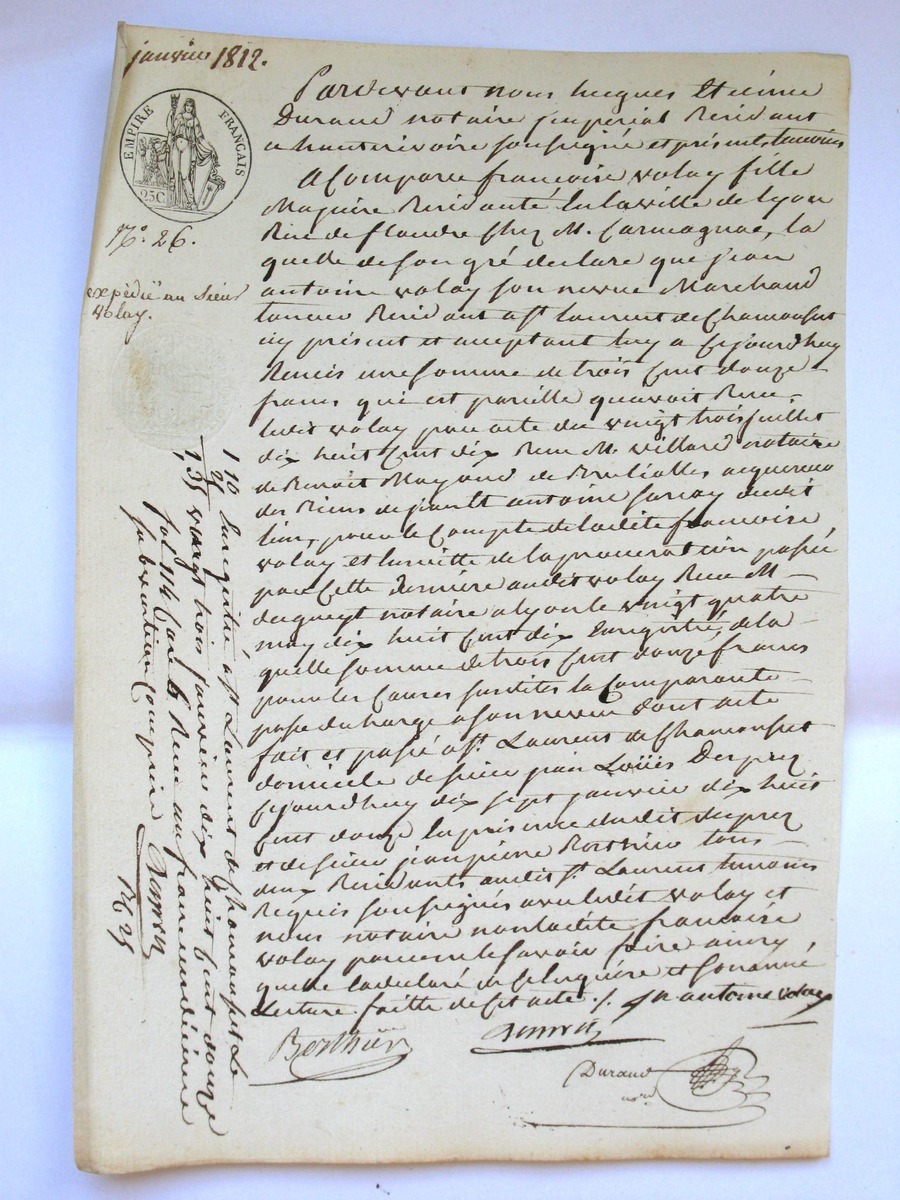 janvier 1812.
EMPIRE FRANÇAIS
25C
N.o 26.
expédié au sieur
Volay.
Pardevant nous hugues Etienne
Durand notaire imperial Residant
a hauterivoire soussigné et présents temoins
A Comparu francoise volay fille
Majeure Residante en la ville de Lyon
Rue de flandre chez M. Carmagnac, la
quelle de son gré declare que jean
antoine volay son neveu Marchand
tanneur Residant a st laurent de Chamousset
icy présent et acceptant luy a cejourdhuy
Remis une somme de trois cent douze
francs qui est pareille quavoit Recu
ledit volay par acte du vingt trois juillet
dix huit cent dix Recu M. Villard notaire
de Benoit Mayoud de Brullioles acquereur
des Biens de antoine dudit
lieu, pour le Compte de ladite francoise
volay et en suitte de la procuration passée
par cette derniere audit volay Recue M.
dugueyt notaire a lyon le vingt quatre
may dix huit cent dix Enregistré, de la
quelle somme de trois cent douze francs
pour les Causes susdites la Comparante
passe decharge a son neveu dont acte
fait et passé a st. Laurent de Chamousset
domicile de sieur jean Loüis Dupuy
cejourdhuy dix sept janvier dix huit
cent douze En présence dudit
et de sieur jean pierre Berthier tous
deux Residants audit st. Laurent temoins
Requis soussignés avec ledit volay et
nous notaire non ladite francoise
volay pour ne le savoir faire ainsy
quelle la declaré de ce Enquise et sommé
Lecture faitte de cet acte ./. Jn antoine volay
Berthier
Durand
nore
1 10 Enregistré a st Laurent de Chamousset Le
25 vingt trois janvier dix huit cent douze
1,35 fol. 114 Case 6 Recu un franc un decime
subvention Comprise
R 25